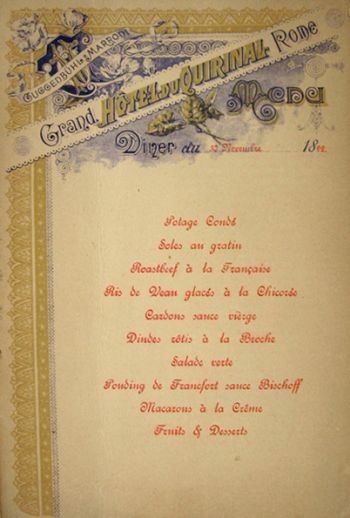 Guggenbühl & Marconi
Grand Hôtel du Quirinal Rome
Menu
Diner du Novembre 18
Potage Condé
Soles au gratin
Roastbeef à la Française
Ris de Veau glacés à la Chicorée
Cardons sauce vièrge
Dindes rôtis à la Broche
Salade verte
Pouding de Francfort sauce Bischoff
Macarons à la Crême
Fruits & Desserts